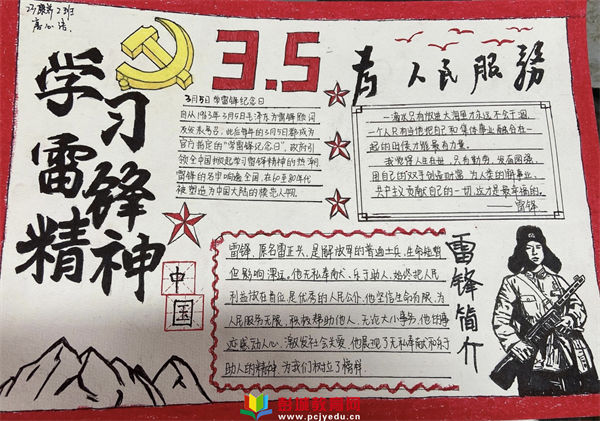 学习
雷锋
精神
3.5
为人民服務
3月5日学雷锋纪念日
自从1963年3月5日毛泽东为雷锋题词
发表索号，此后每年的3月5日都成为
官方指定的"学雷锋纪念日"，政府引
领全中国掀起学习雷锋精神的热潮
雷锋的名字响遍全国，在60至80年代
被塑造为中国大陆的模范人物.
一滴水只有放进大海里才永远不会干涸，
一个人只有当他把自己和集体事业融合在一
起的时候才能最有力量。
我觉得人生在世，只有勤劳，发奋图强，
用自己的双手创造财富，为人类的解放事业，
共产主义贡献自己的一切，这才是最幸福的。
雷锋
中
国
雷锋，原名雷正兴，是解放军的普通士兵，生命短暂
但影响深远。他无私奉献、乐于助人，始终把人民
利益放在首位，是优秀的人民公仆。他坚信生命有限，为
人民服务无限，积极帮助他人，无论大小事务，他的事
迹感动人心，激发社会关爱，他展现了无私奉献和乐于
助人的精神，为我们树立了榜样.
雷锋简介
彭城教育网
www.pcjyedu.cn